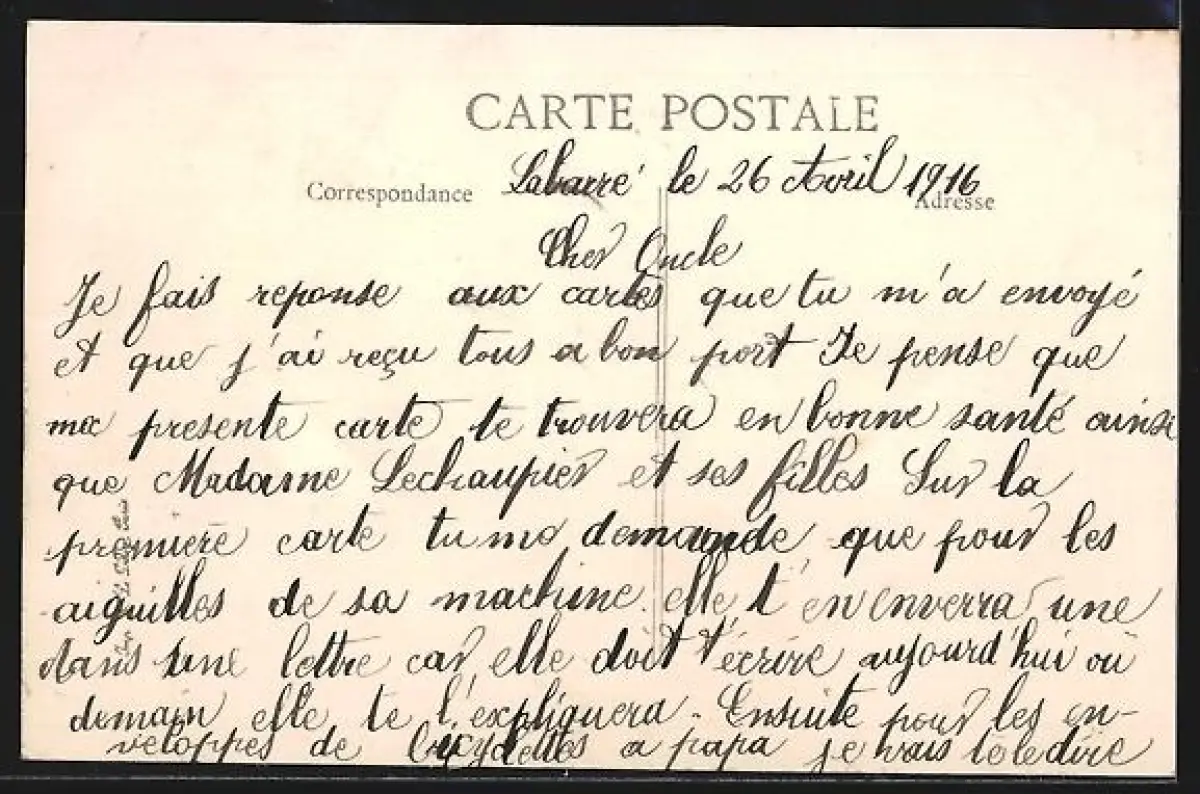 CARTE POSTALE
Correspondance
Adresse
Labarre le 26 Avril 1916
Cher Oncle
Je fais reponse aux cartes que tu m'a envoyé
et que j'ai reçu tous a bon port Je pense que
ma presente carte te trouvera en bonne santé ainsi
que Madame Lechaupier et ses filles Sur la
premiere carte tu me demande que pour les
aiguilles de sa machine. elle t'en enverra une
dans une lettre car elle doit t'écrire aujourd'hui ou
demain elle te l'expliquera. Ensuite pour les en-
veloppes de bicyclettes a papa je vais te le dire